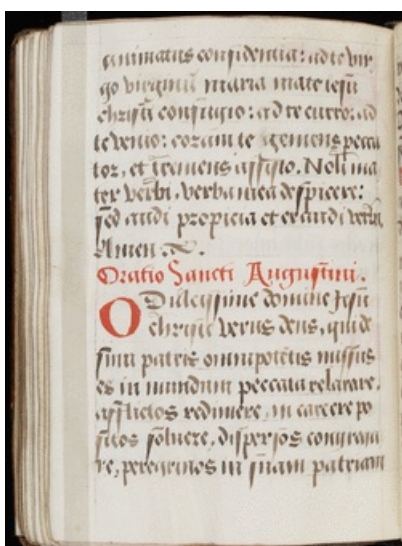 animatus confidentia: ad te vir
go virginū maria mater iesu
christi confugio: ad te curro: ad
te venio: coram te gemens pecca
tor, et tremens assisto. Noli ma
ter verbi, verba mea despicere:
sed audi propicia et exaudi verbi
Amen
Oratio Sancti Augustini.
O Dulcissime domine Jesu
christe verus deus, qui de
sinu patris omnipotētis missus
es in mundum peccata relaxare,
afflictos redimere, in carcere po
sitos soluere, dispersos congrega
re, peregrinos in suam patriam